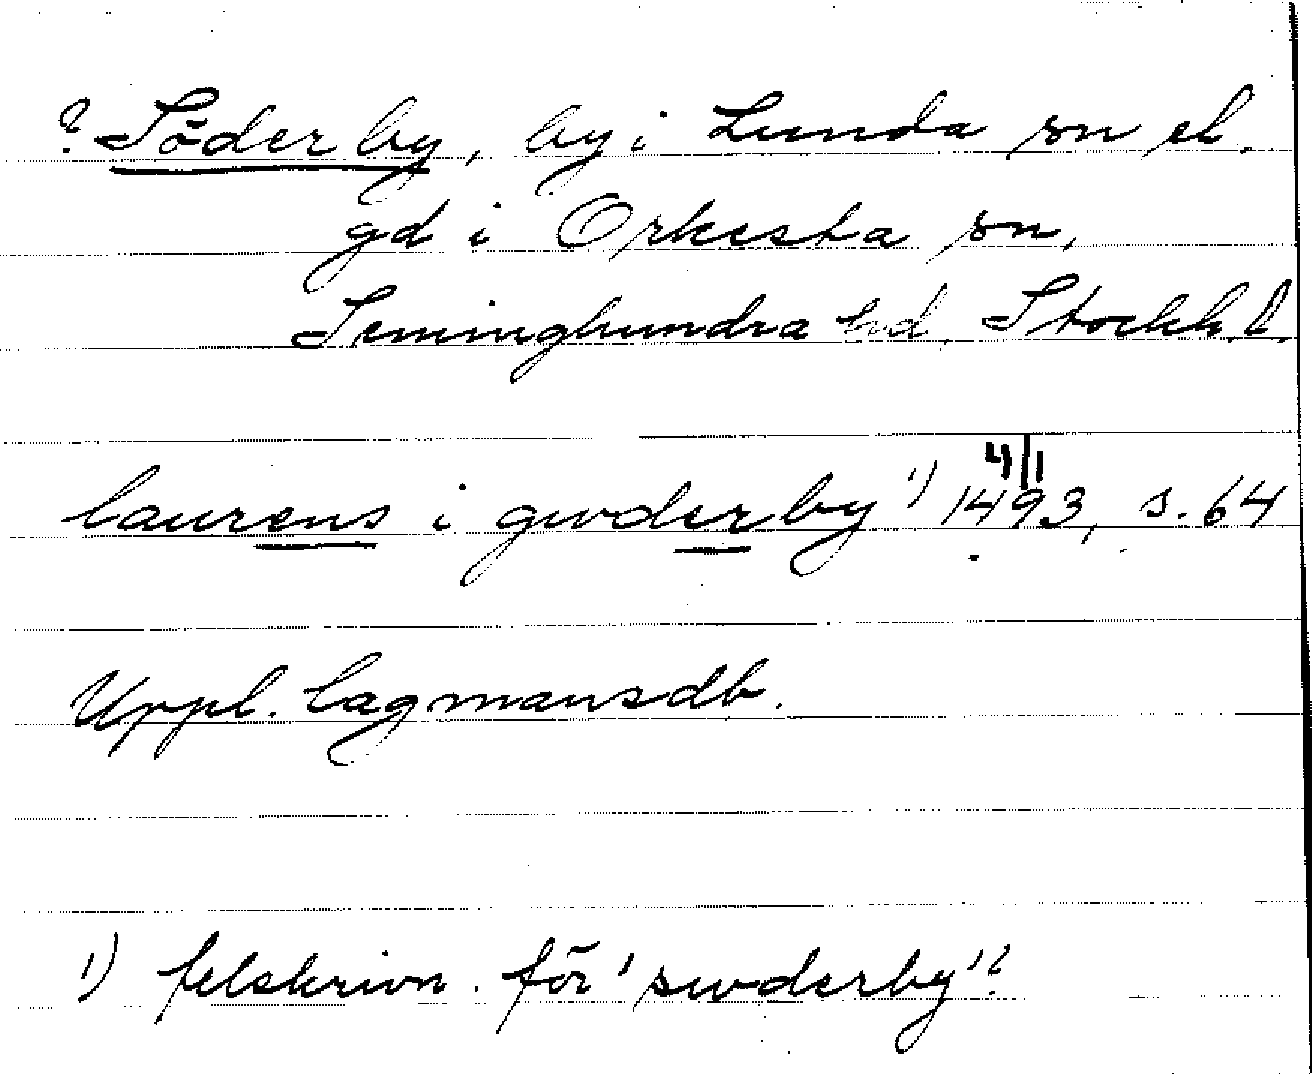 ? Söderby, by i Lunda sn el.
gd i Orkesta sn,
Seminghundra hd, Stockh. l.
4/1
laurens i gwderby 1) 1493, s. 64
Uppl. lagmansdb.
1) felskrivn. för 'swderby'?